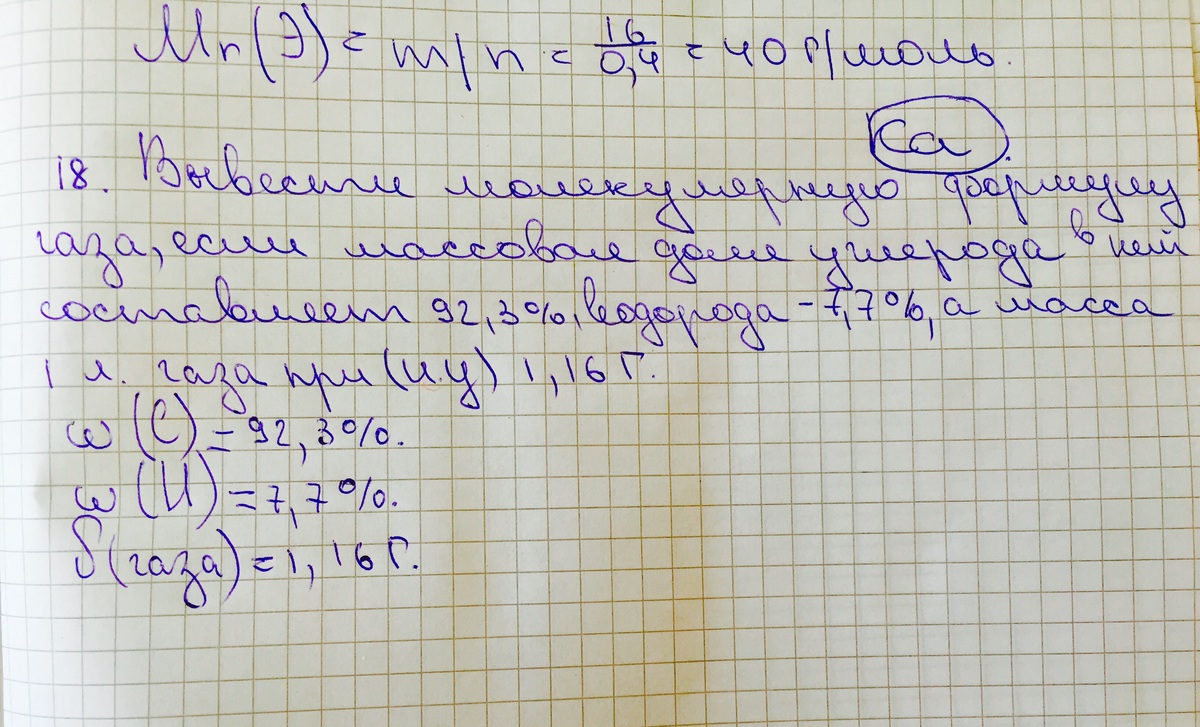 Mr(Э) = m/n = 16/0,4 = 40 г/моль.
Ca.
18. Вывести молекулярную формулу
газа, если массовая доля углерода в ней
составляет 92,3%, водорода - 7,7%, а масса
1 л. газа при (н.у) 1,16 г.
ω(C) = 92,3%.
ω(H) = 7,7%.
δ(газа) = 1,16 г.